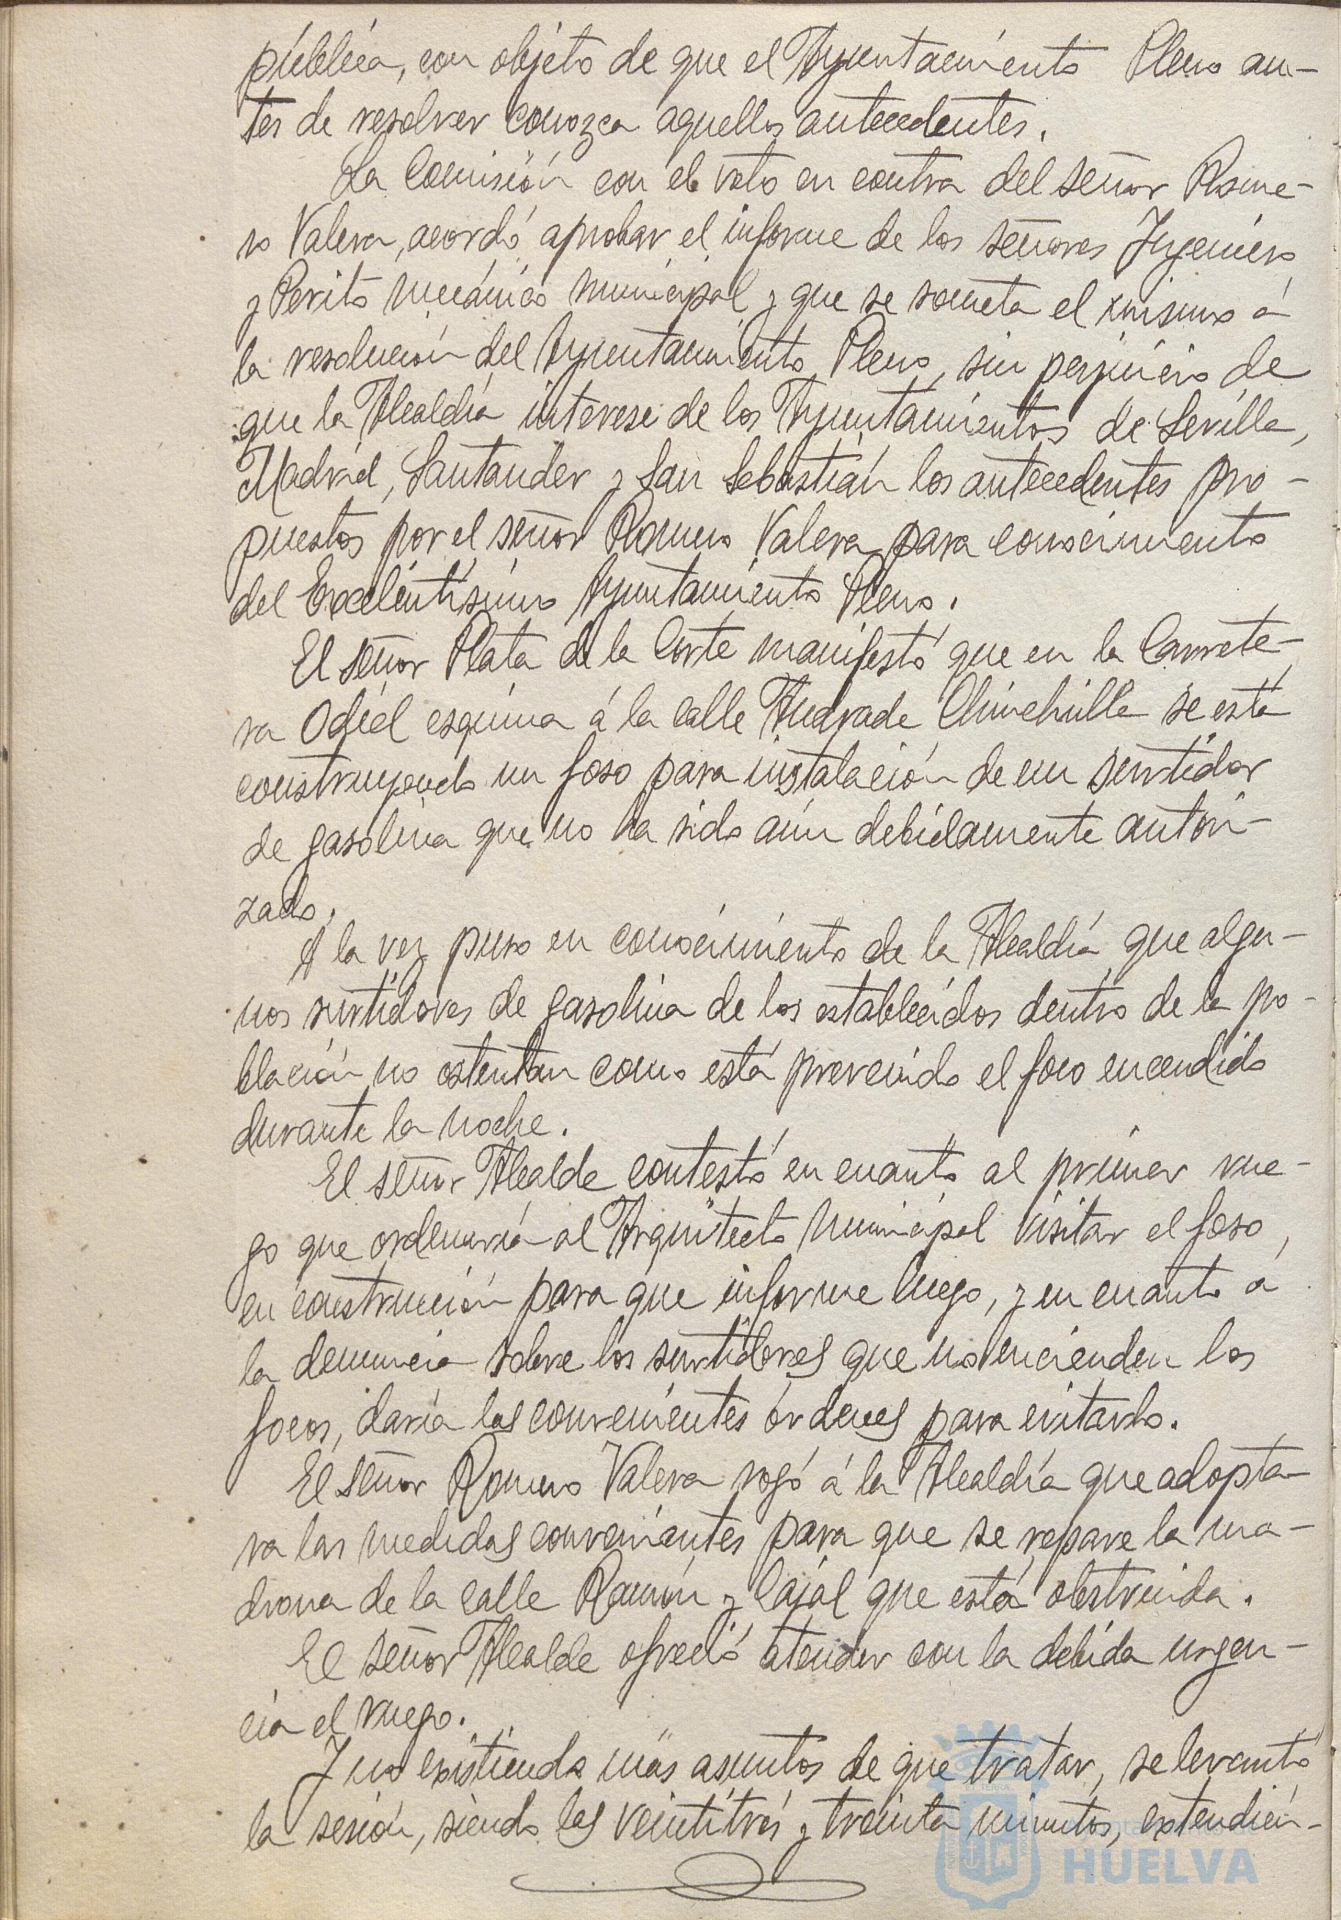 pública, con objeto de que el Ayuntamiento Pleno an-
tes de resolver conozca aquellos antecedentes.
La Comisión con el voto en contra del señor Rome-
ro Valera, acordó aprobar el informe de los señores Ingeniero
y Perito mecánico municipal y que se someta el mismo á
la resolución del Ayuntamiento Pleno, sin perjuicio de
que la Alcaldía interese de los Ayuntamientos de Sevilla,
Madrid, Santander y San Sebastián los antecedentes pro-
puestos por el señor Romero Valera para conocimiento
del Excelentísimo Ayuntamiento Pleno.
El señor Plata de la Corte manifestó que en la Carrete-
ra Odiel esquina á la calle Andrade Chinchilla se está
construyendo un foso para instalación de un surtidor
de gasolina que no ha sido aún debidamente autori-
zado.
A la vez puso en conocimiento de la Alcaldía que algu-
nos surtidores de gasolina de los establecidos dentro de la po-
blación no ostentan como está prevenido el foco encendido
durante la noche.
El señor Alcalde contestó en cuanto al primer rue-
go que ordenaría al Arquitecto municipal visitar el foso,
en construcción para que informe luego, y en cuanto á
la denuncia sobre los surtidores que no encienden los
focos, daría las convenientes órdenes para evitarlo.
El señor Romero Valera rogó á la Alcaldía que adopta-
ra las medidas convenientes para que se repare la ma-
drona de la calle Ramón y Cajal que está obstruida.
El señor Alcalde ofreció atender con la debida urgen-
cia el ruego.
Y no existiendo más asuntos de que tratar, se levantó
la sesión, siendo las veintitrés y treinta minutos, extendién-
HUELVA